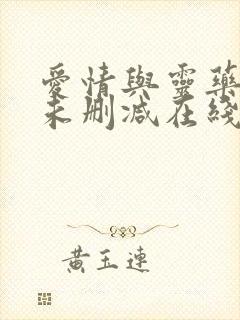 愛情與靈藥
未刪減在綫
黃玉連